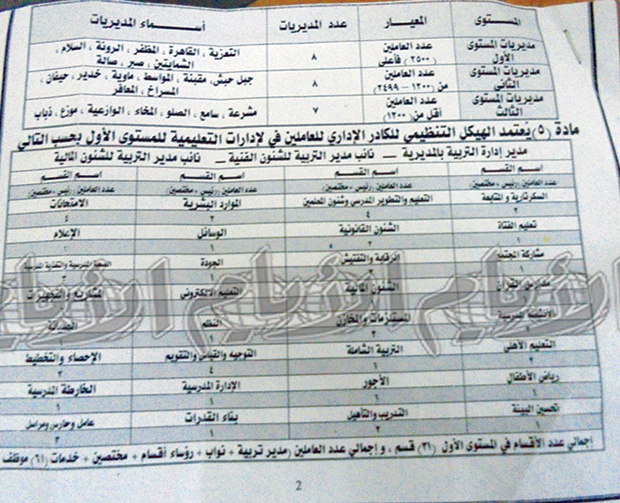 المستوى المعيار عدد المديريات أسماء المديريات
مديريات المستوى الأول عدد العاملين (٢٥٠٠) فأعلى ٨ التعزية ، القاهرة ، المظفر ، الرونة ، السلام ، الشمايتين ، صبر ، صالة
مديريات المستوى الثاني عدد العاملين من (١٢٠٠ – ٢٤٩٩) ٨ جبل حبش، مقبنة ، المواسط ، ماوية ، خدير ، حيفان ، المسراخ ، المعافر
مديريات المستوى الثالث عدد العاملين أقل من (١٢٠٠) ٧ مشرعة ، سامع ، الصلو ، المخاء ، الوازعية ، موزع ، ذباب
مادة (٥) يعتمد الهيكل التنظيمي للكادر الإداري للعاملين في لإدارات التعليمية للمستوى الأول بحسب التالي
مدير إدارة التربية بالمديرية – نائب مدير التربية للشئون الفنية – نائب مدير التربية للشئون المالية
اسم القسم اسم القسم اسم القسم اسم القسم
عدد العاملين (رئيس ، مختصين) عدد العاملين (رئيس ، مختصين) عدد العاملين (رئيس ، مختصين) عدد العاملين (رئيس ، مختصين)
السكرتارية و المتابعة التعليم والتطوير المدرسي وشئون المعلمين الموارد البشرية الامتحانات
تعليم الفتاة الشئون القانونية الوسائل الإعلام
مشاركة المجتمع الرقابة والتفتيش الجودة الصحة المدرسية والتغذية المدرسية
مدارس القرآن الشئون المالية التعليم الالكتروني المشاريع والتجهيزات
الأنشطة المدرسية المستلزمات والمخازن النظم
التعليم الأهلي التربية الشاملة التوجيه والقياس والتقويم الإحصاء والتخطيط
رياض الأطفال الأجور الإدارة المدرسية الخارطة المدرسية
تحسين البيئة التدريب والتأهيل بناء القدرات عامل وحارس ومراسل
إجمالي عدد الأقسام في المستوى الأول (٣١) قسم ، و إجمالي عدد العاملين (مدير تربية + نواب + رؤساء أقسام + مختصين + خدمات (٦١) موظف
2